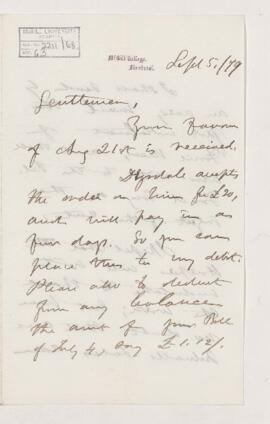 McGill College,
Montreal.
Sept 5./79
Gentlemen,
Your Favour
of Aug 21st is received.
Drysdale accepts
the order on him for £20,
and will pay in a
few days. So you can
place this to my debt.
Please also to deduct
from any balances
the amt of your Bill
of July 4, say £1.12/.